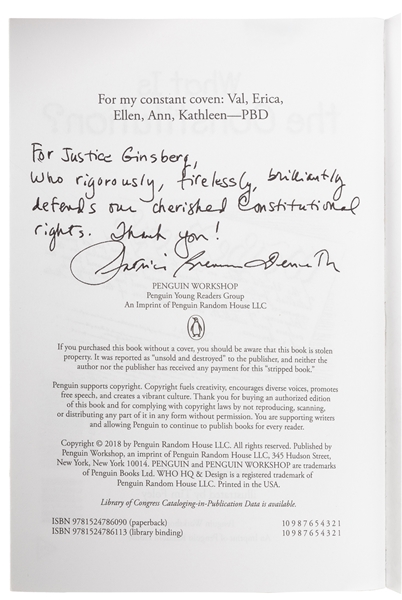 For my constant coven: Val, Erica,
Ellen, Ann, Kathleen—PBD
For Justice Ginsberg,
who rigorously, tirelessly, brilliantly
defends our cherished Constitutional
rights. Thank you!
Patricia Brennan Demuth
PENGUIN WORKSHOP
Penguin Young Readers Group
An Imprint of Penguin Random House LLC
If you purchased this book without a cover, you should be aware that this book is stolen
property. It was reported as "unsold and destroyed" to the publisher, and neither the
author nor the publisher has received any payment for this "stripped book."
Penguin supports copyright. Copyright fuels creativity, encourages diverse voices, promotes
free speech, and creates a vibrant culture. Thank you for buying an authorized edition
of this book and for complying with copyright laws by not reproducing, scanning,
or distributing any part of it in any form without permission. You are supporting writers
and allowing Penguin to continue to publish books for every reader.
Copyright © 2018 by Penguin Random House LLC. All rights reserved. Published by
Penguin Workshop, an imprint of Penguin Random House LLC, 345 Hudson Street,
New York, New York 10014. PENGUIN and PENGUIN WORKSHOP are trademarks
of Penguin Books Ltd. WHO HQ & Design is a registered trademark of
Penguin Random House LLC. Printed in the USA.
Library of Congress Cataloging-in-Publication Data is available.
ISBN 9781524786090 (paperback) 10 9 8 7 6 5 4 3 2 1
ISBN 9781524786113 (library binding) 10 9 8 7 6 5 4 3 2 1